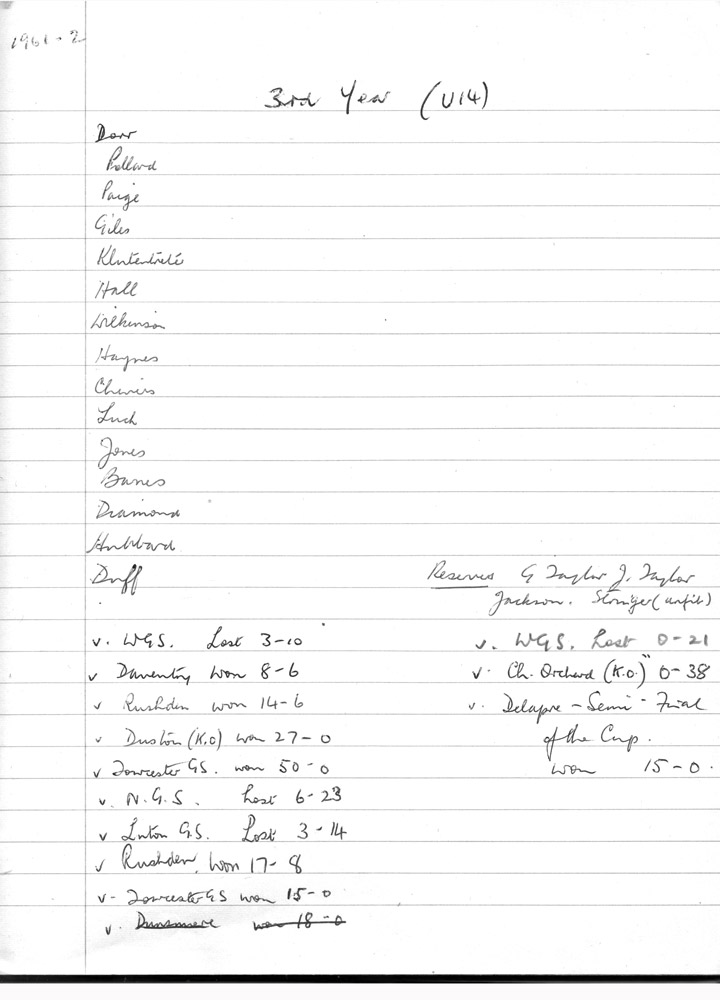 1961-2
3rd Year (U14)
Dorr
Pollard
Paige
Giles
Hall
Wilkinson
Haynes
Chewins
Luck
Jones
Banes
Diamond
Hubbard
Duff
Reserves G Taylor J. Taylor
Jackson. (unfit)
v. WGS. Lost 3-10
v Daventry won 8-6
v Rushden won 14-6
v Duston (K.O) won 27-0
v Towcester GS. won 50-0
v. N.G.S. Lost 6-23
v Luton G.S. Lost 3-14
v Rushden. Won 17-8
v- Towcester GS won 15-0
v. Dunsmere won 18-0
v. WGS. Lost 0-21
v. Ch. Orchard (K.O.) " 0-38
v. Delapre - Semi-Final
of the Cup.
won 15-0.